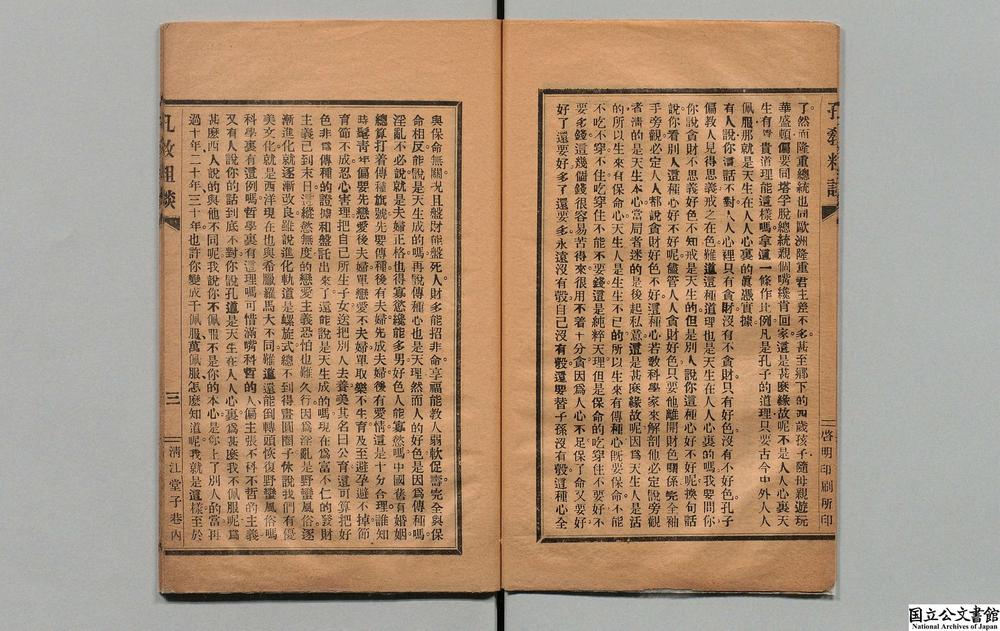 了然而隆重總統也同歐洲隆重君主差不多甚至鄉下的四歲孩子隨母親遊玩
華盛頓偏要同塔孚脫總統親個嘴纔肯回家這是甚麼緣故呢不是人人心裏天
生有尊貴道理能這樣嗎拿這一條作比例凡是孔子的道理只要古今中外人人
佩服那就是天生在人人心裏的眞憑實據
有人說你這話不對人人心裡只有貪財沒有不貪財只有好色沒有不好色孔子
偏教人見得思義戒之在色難道這種道理也是天生在人人心裏的嗎我要問你
你說貪財不思義好色不知戒是天生的但是別人說你這種心好不好呢換句話
說你看別人這種心好不好呢儘管人人貪財好色只要他離開財色關係完全袖
手旁觀必定人人都說貪財好色不好這種心若教科學家來解剖他必定說旁觀
者淸的是天生本心當局者迷的是後起私意這是甚麼緣故呢因爲天生人是活
的所以生來有保命心天生人是生生不已的所以生來有傳種心旣要保命不能
不吃不穿不住吃穿住不能不要錢這是純粹天理但是保命的吃穿住不要好不
要多錢這幾個錢很容易苦得來很用不着十分貪因爲人心不足保了命又要好
好了還要好多了還要多永遠沒有彀自己沒有彀還要替子孫沒有彀這種心全
啓明印刷所印
與保命無關况且盤財能盤死人財多能招非命享福能教人弱軟促壽完全與保
命相反能說是天生成的嗎再說傳種心也是天理然而人的好色是因爲傳種嗎
淫亂不必說就是夫婦正格也得寡慾纔能多男好色人能寡慾嗎中國舊有婚姻
總算打着傳種旗號先要傳種後有夫婦先成夫婦後有愛情這是十分合理誰知
時髦靑年偏要先戀愛後夫婦單戀愛不夫婦單取樂不生育及至避孕避不掉節
育節不成忍心害理把自己所生子女送把別人去養美其名曰公育這可算把好
色非爲傳種的證據和盤託出來了還能說是天生成的嗎現在爲富不仁的發財
主義已到末日這縱慾無度的戀愛主義恐怕也難久行因爲淫亂是野蠻風俗逐
漸進化就逐漸改良縱說進化軌道是螺旋式總不到得畫圓圈子休說我們有優
美文化就是西洋現在也與希臘羅馬大不同難道還能倒轉頭恢復野蠻風俗嗎
科學裏有這例嗎哲學裏有這理嗎可惜滿嘴科哲的人偏主張不科不哲的主義
又有人說你的話到底不對你說孔道是天生在人人心裏爲甚麼我不佩服呢爲
甚麼西人說的與他不同呢我說你不佩服不是你的本心是你上了別人的當再
過十年二十年三十年也許你變成千佩服萬佩服怎麼知道呢我就是這樣至於
三
淸江堂子巷內
国立公文書館
National Archives of Japan